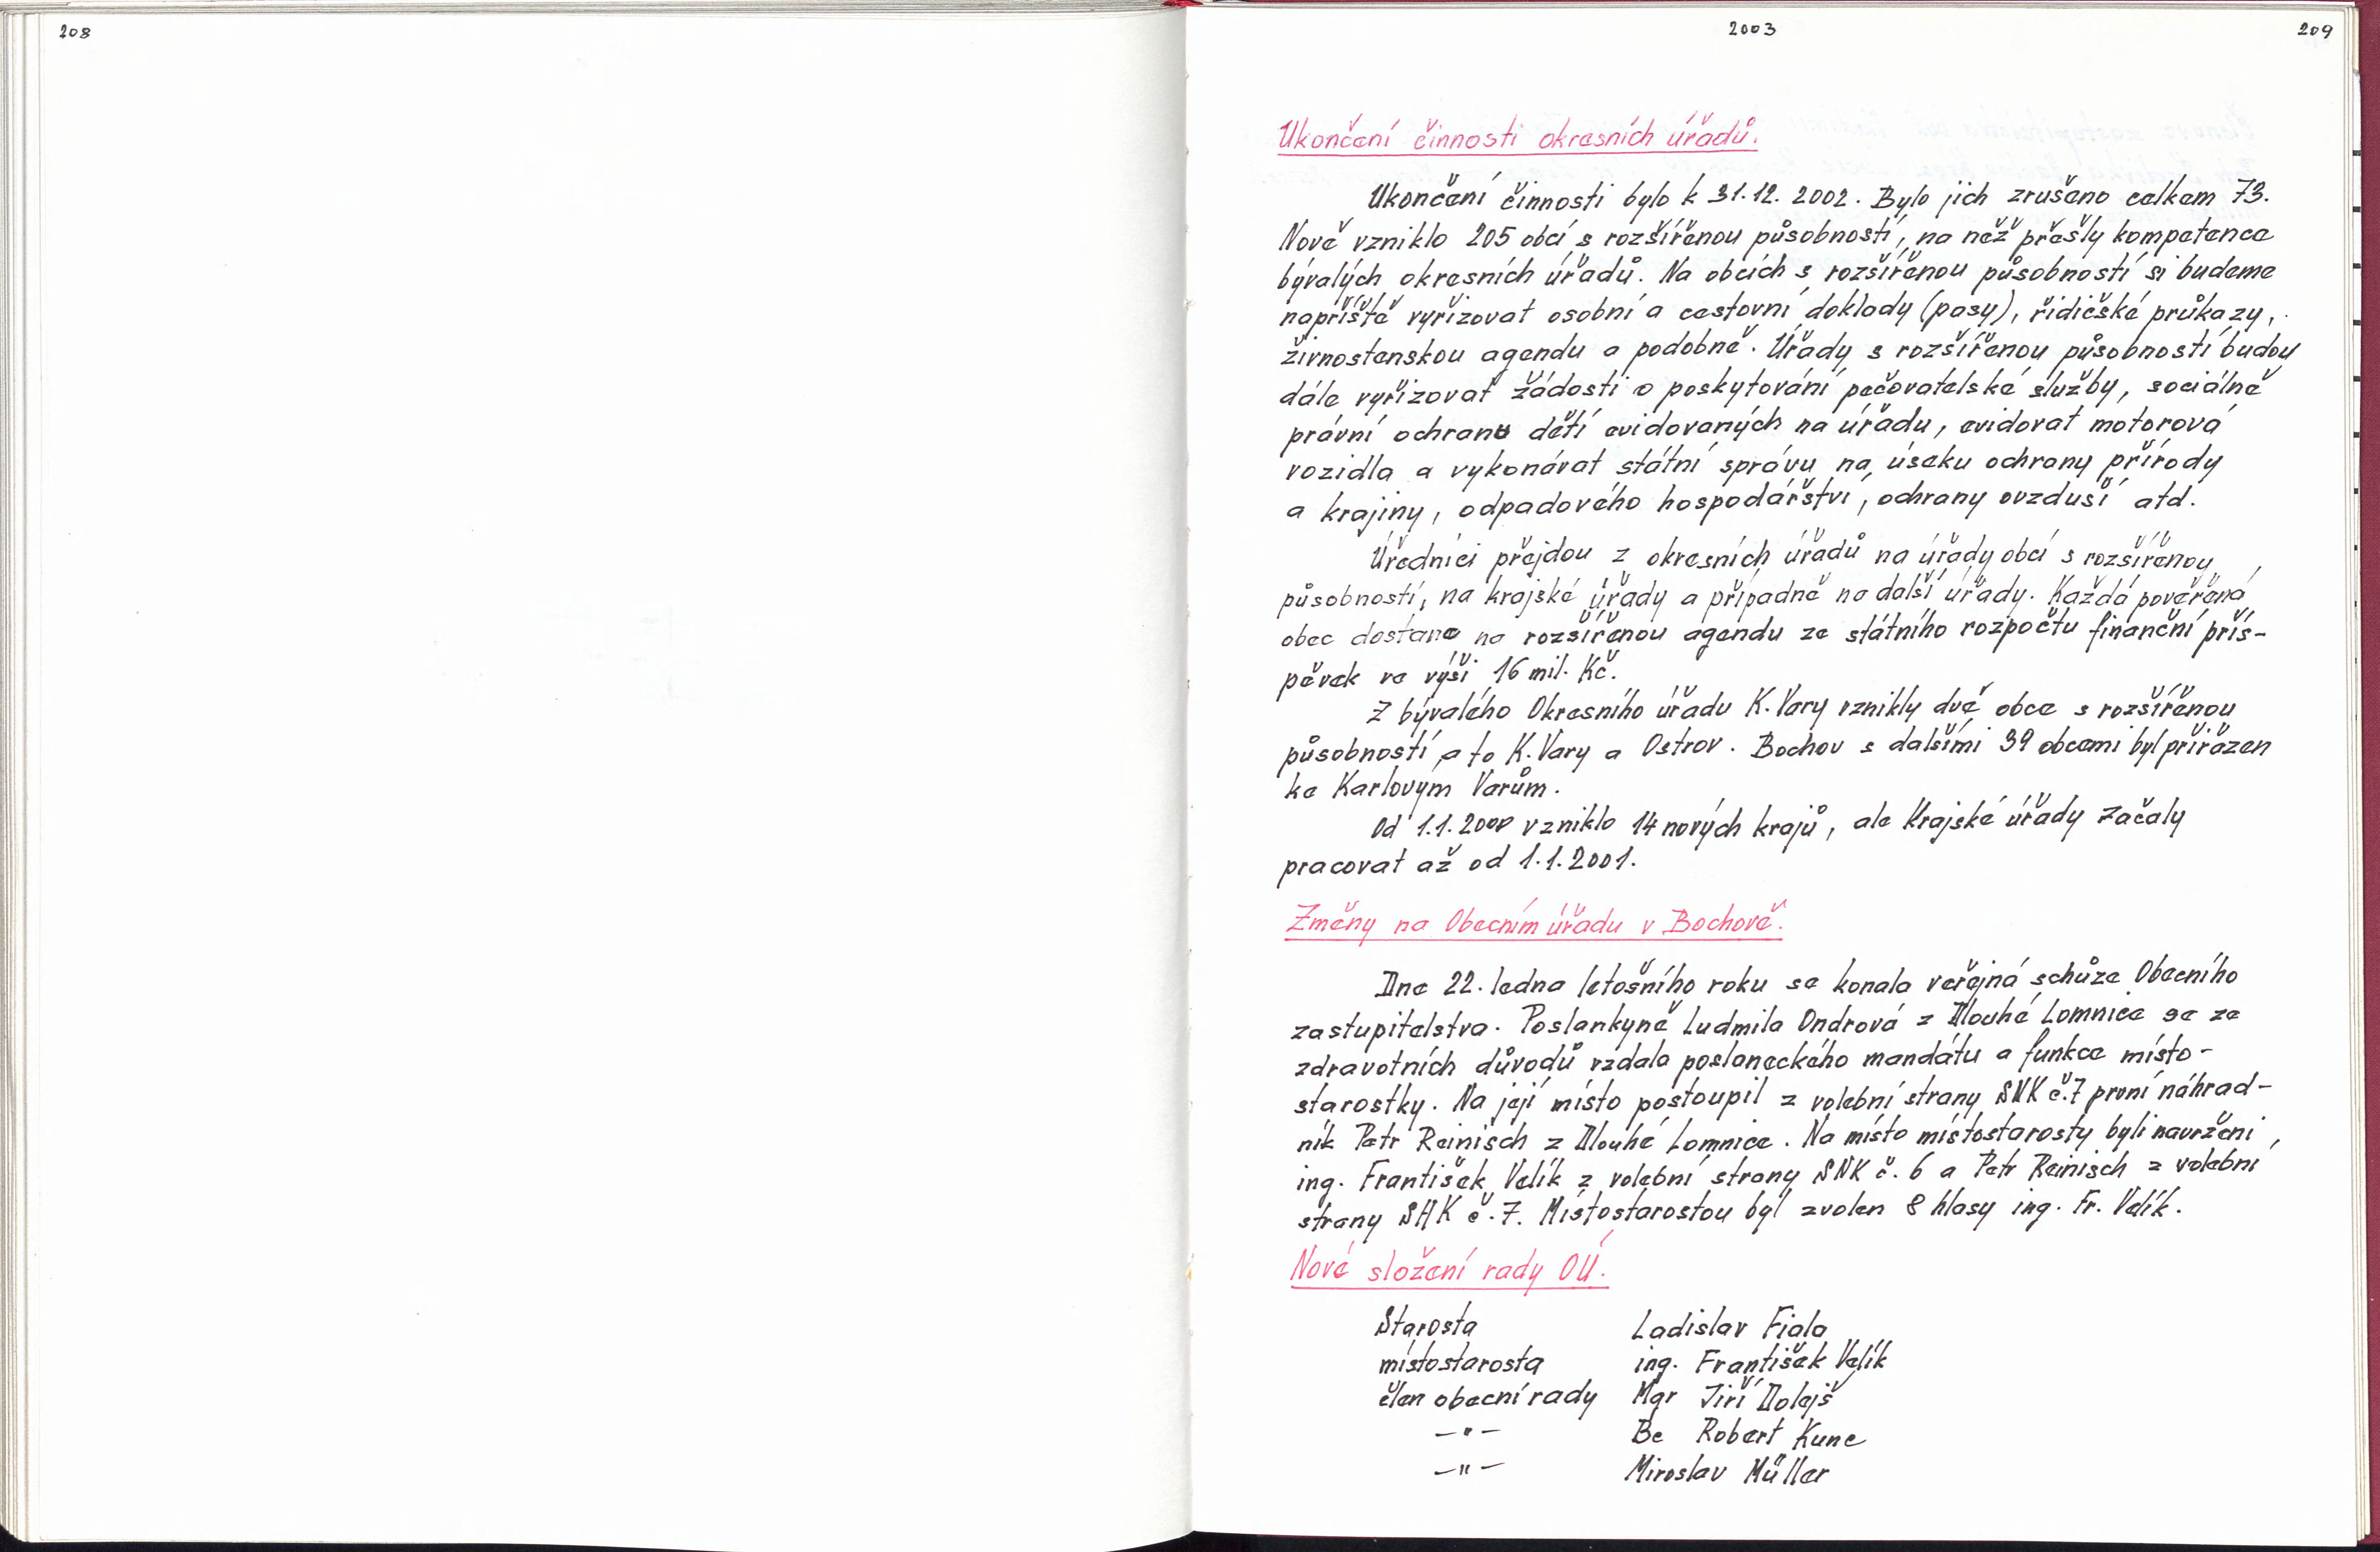 208
2003
209
Ukončení činnosti okresních úřadů.
Ukončení činnosti bylo k 31.12. 2002. Bylo jich zrušeno celkem 73.
Nově vzniklo 205 obcí s rozšířenou působností, na něž přešly kompetence
bývalých okresních úřadů. Na obcích s rozšířenou působností si budeme
napříště vyřizovat osobní a cestovní doklady (pasy), řidičské průkazy,
živnostenskou agendu a podobně. Úřady s rozšířenou působností budou
dále vyřizovat žádosti o poskytování pečovatelské služby, sociálně
právní ochranu dětí evidovaných na úřadu, evidovat motorová
vozidla a vykonávat státní správu na úseku ochrany přírody
a krajiny, odpadového hospodářství, ochrany ovzduší atd.
Úředníci přejdou z okresních úřadů na úřady obcí s rozšířenou
působností, na krajské úřady a případně na další úřady. Každá pověřená
obec dostane na rozšířenou agendu ze státního rozpočtu finanční přís-
pěvek ve výši 16 mil. Kč.
Z bývalého Okresního úřadu K. Vary vznikly dvě obce s rozšířenou
působností, a to K. Vary a Ostrov. Bochov s dalšími 39 obcemi byl přiřazen
ke Karlovým Varům.
Od 1.1.2000 vzniklo 14 nových krajů, ale Krajské úřady začaly
pracovat až od 1.1.2001.
Změny na Obecním úřadu v Bochově.
Dne 22. ledna letošního roku se konala veřejná schůze Obecního
zastupitelstva. Poslankyně Ludmila Ondrová z Dlouhé Lomnice se ze
zdravotních důvodů vzdala poslaneckého mandátu a funkce místo-
starostky. Na její místo postoupil z volební strany SNK č.7 první náhrad-
ník Petr Reinisch z Dlouhé Lomnice. Na místo místostarosty byli navrženi
ing. František Velík z volební strany SNK č. 6 a Petr Reinisch z volební
strany SNK č. 7. Místostarostou byl zvolen 8 hlasy ing. Fr. Velík.
Nové složení rady OÚ.
Starosta Ladislav Fiala
místostarosta ing. František Velík
člen obecní rady Mgr Jiří Dolejš
—"— Bc Robert Kunc
—"— Miroslav Müller